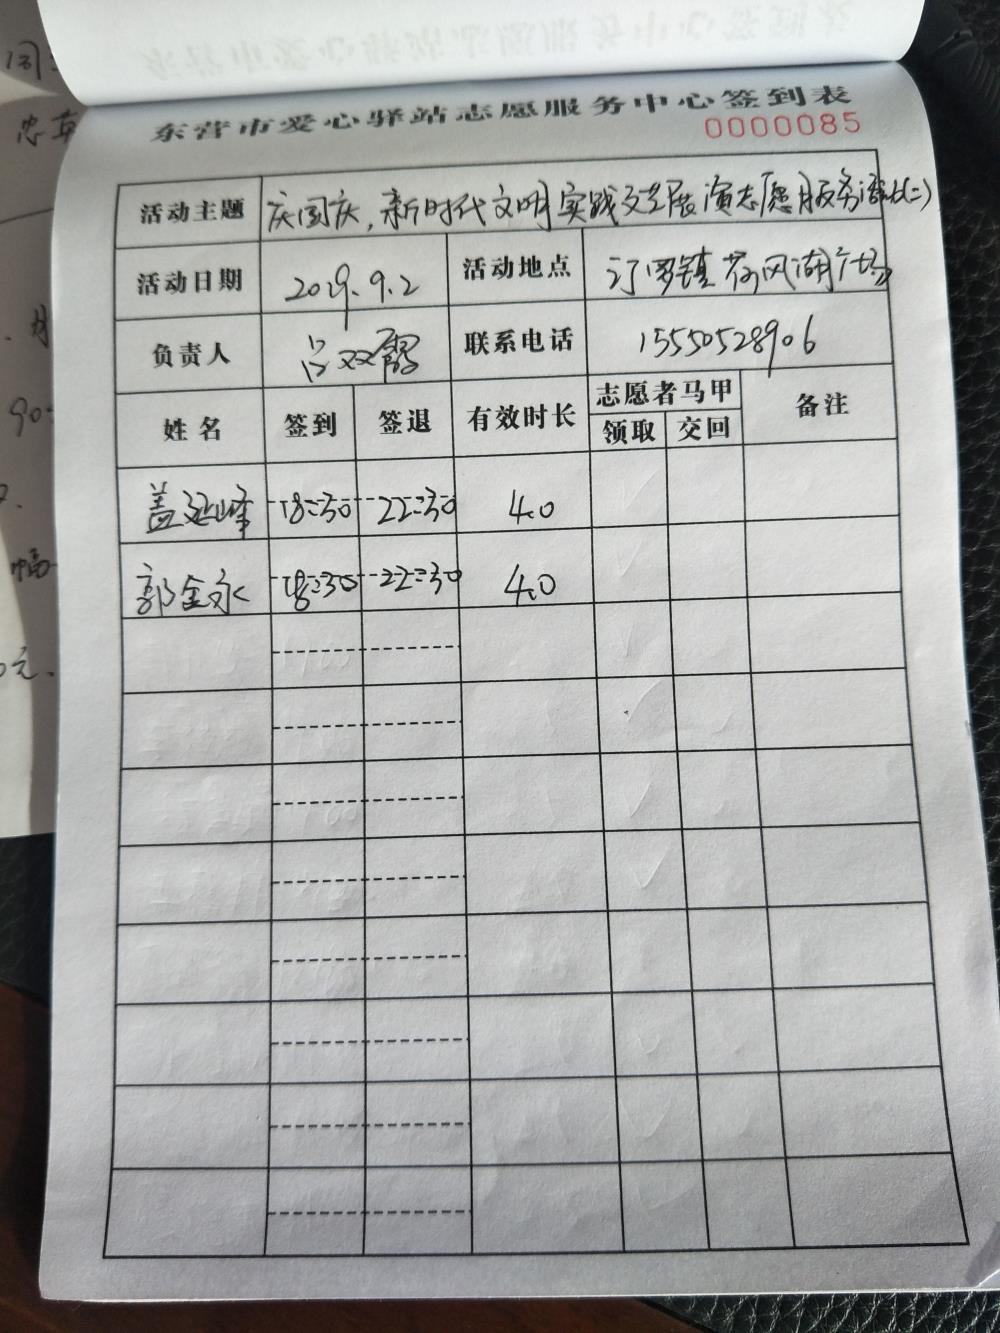 东营市爱心驿站志愿服务中心签到表
0000085
活动主题 庆国庆,新时代文明实践文艺展演志愿服务活动(二)
活动日期 2019.9.2 活动地点 汀罗镇荷风湖广场
负责人 吕双霞 联系电话 15550528906
姓名 签到 签退 有效时长 志愿者马甲 备注
领取 交回
盖延峰 18:30 22:30 4.0
郭金永 18:30 22:30 4.0